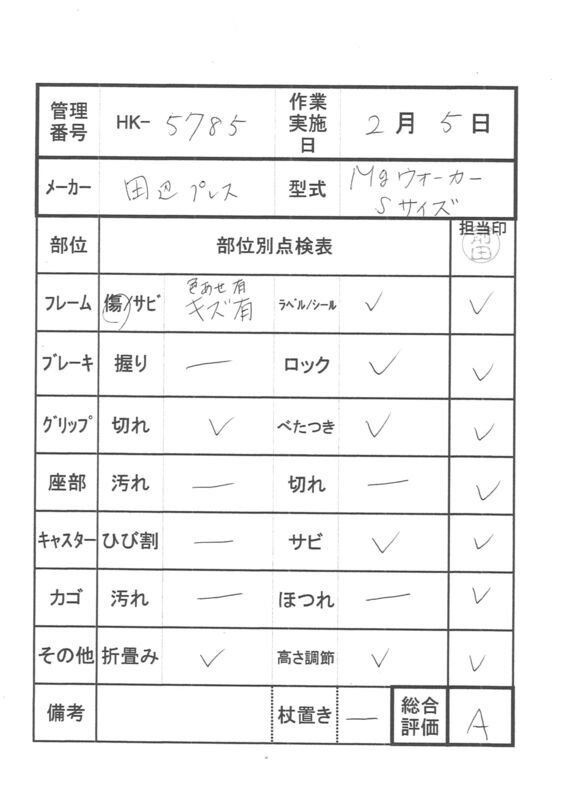 管理番号 HK-5785 作業実施日 2月5日
メーカー 田辺プレス 型式 Mgウォーカー Sサイズ
部位 部位別点検表 担当印 前田
フレーム 傷/サビ 色あせ有 キズ有 ラベル/シール ✓ ✓
ブレーキ 握り — ロック ✓ ✓
グリップ 切れ ✓ べたつき ✓ ✓
座部 汚れ — 切れ — ✓
キャスター ひび割 — サビ ✓ ✓
カゴ 汚れ — ほつれ — ✓
その他 折畳み ✓ 高さ調節 ✓ ✓
備考 杖置き — 総合評価 A